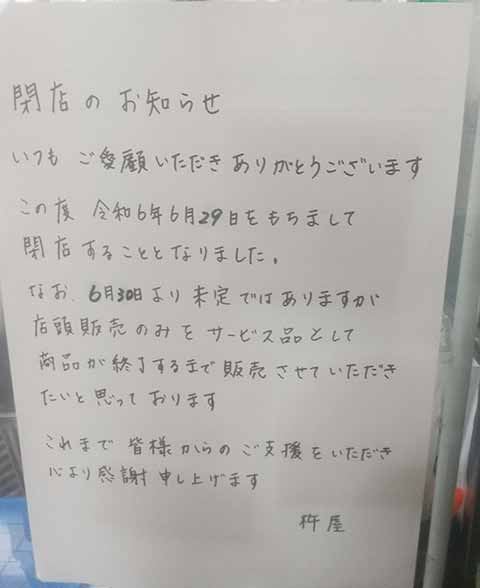 閉店のお知らせ
いつも ご愛顧いただき ありがとうございます
この度 令和6年6月29日をもちまして
閉店することとなりました。
なお、6月30日より 未定ではありますが
店頭販売のみを サービス品として
商品が終了するまで 販売させていただき
たいと思っております
これまで 皆様からのご支援をいただき
心より感謝申し上げます
杵屋